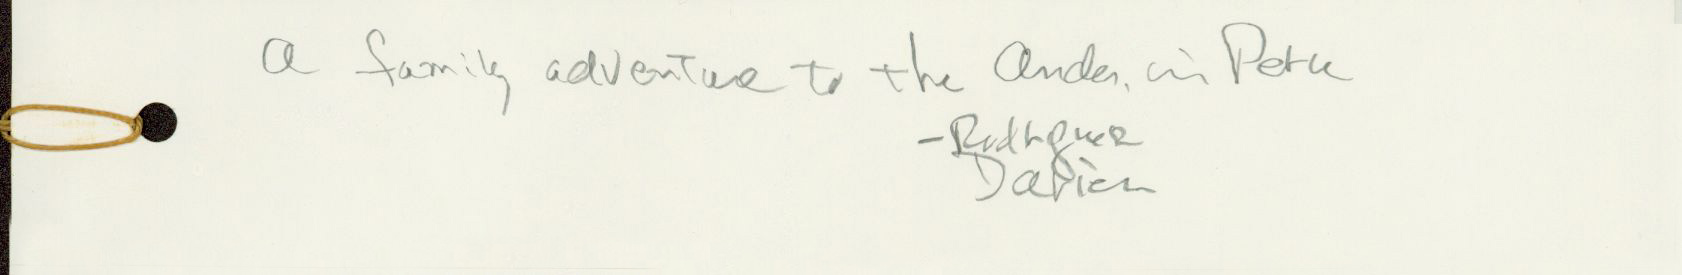 a family adventure to the Andes, in Peru
- Rodriguez
Darien